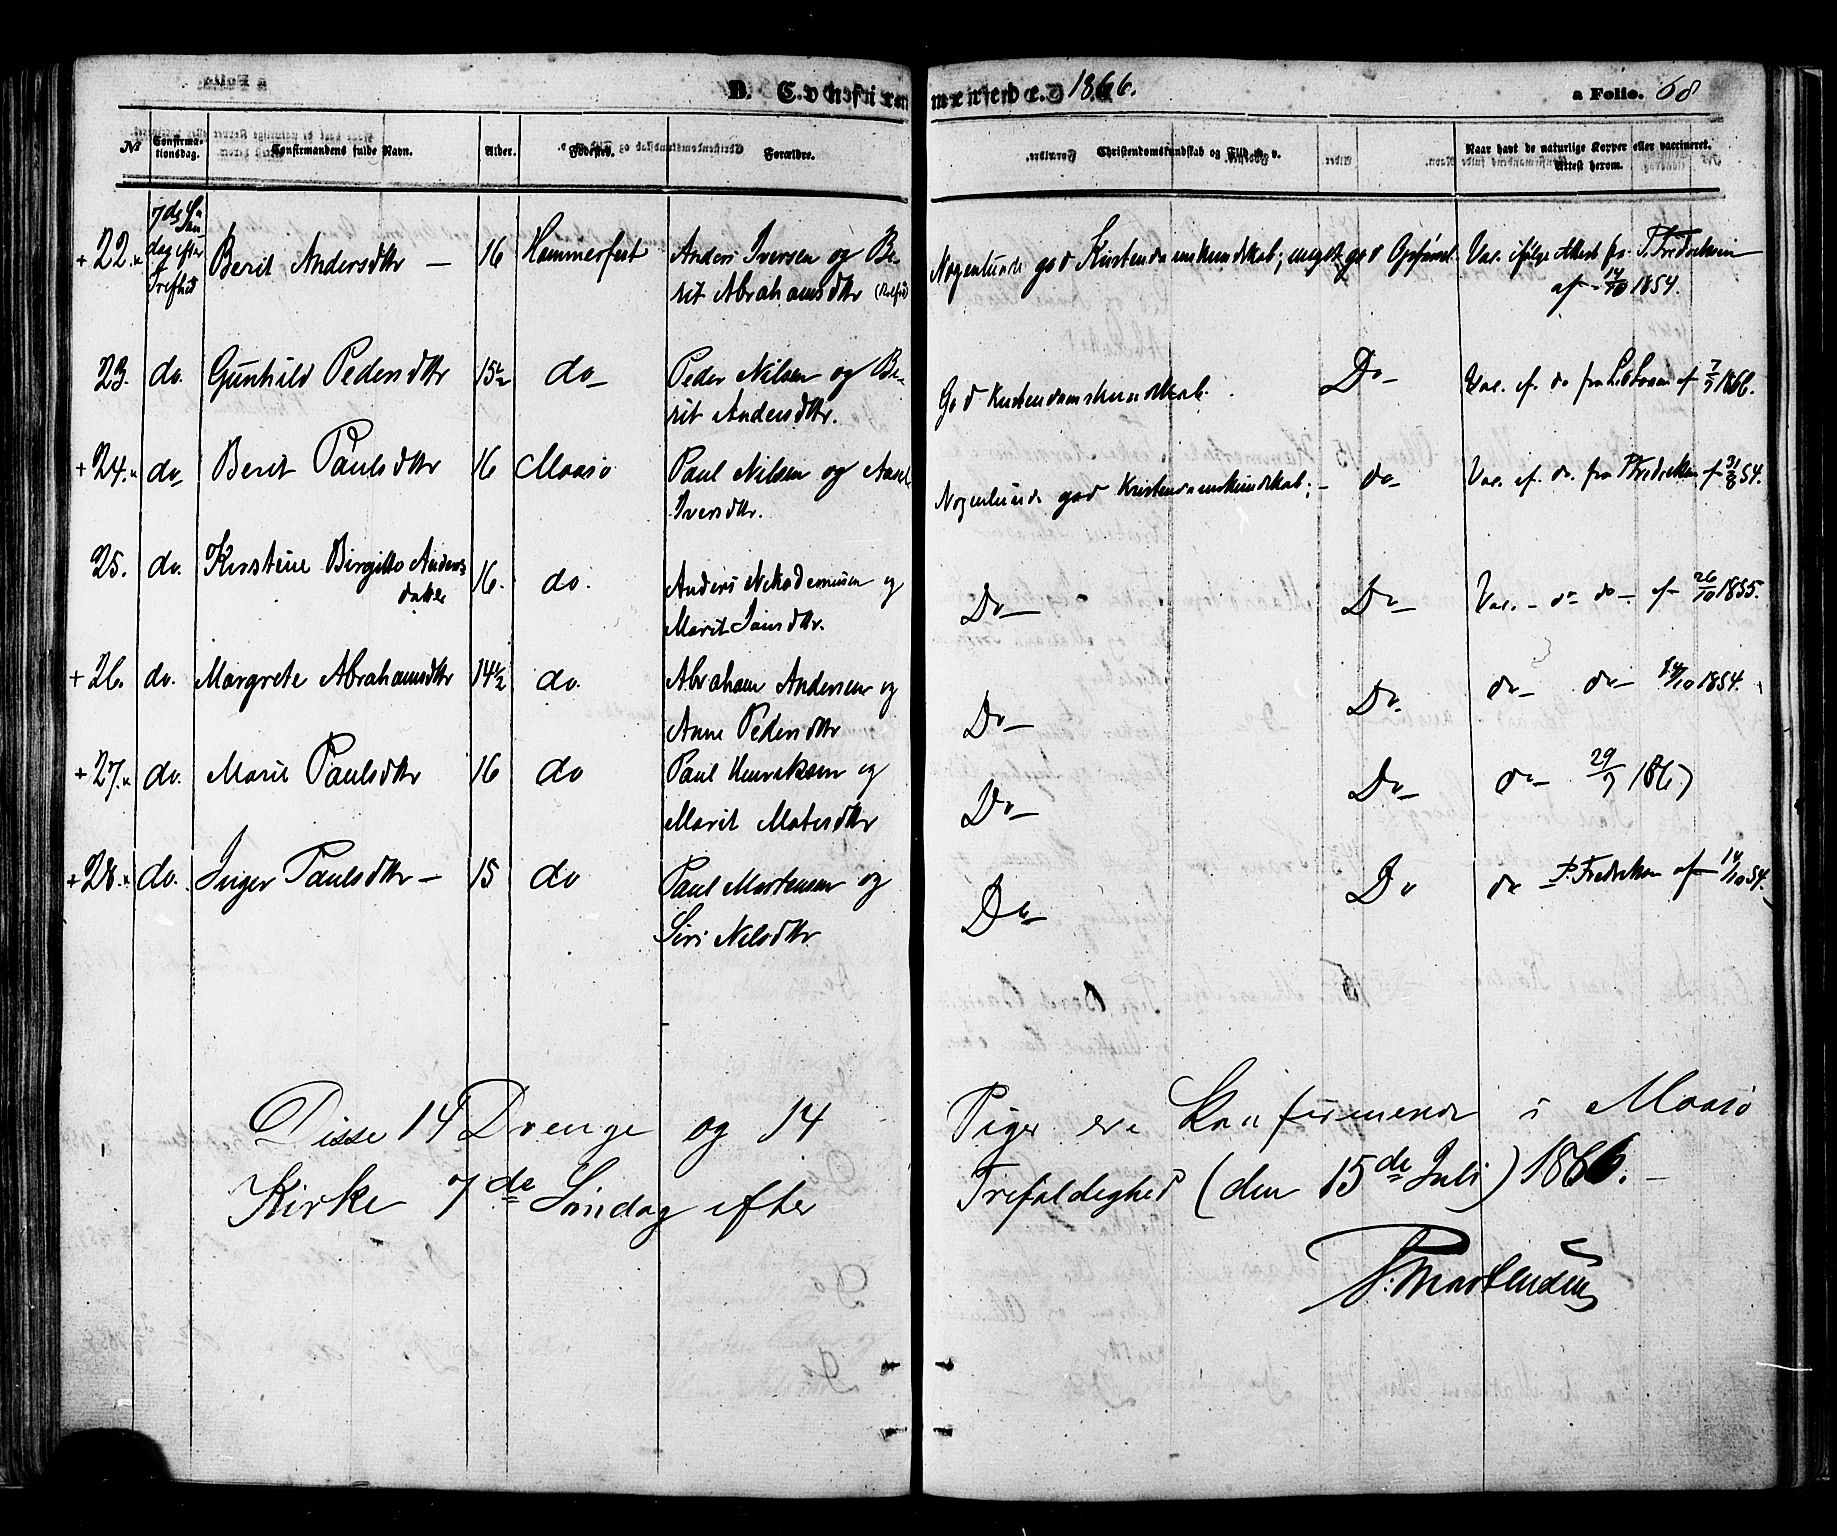 B. Confirmerede. 1866. a Folio. 68
No Confirmationsdag. Confirmandens fulde Navn. Alder. Fødested. Forældre. Christendomskundskab og Flid m. v. Naar havt de naturlige Kopper eller vaccineret. Attest herom.
+ 22. 7de Søndag efter Trefhed Berit Andersdtr — 16 Hammerfest Anders Iversen og Berit Abrahamsdtr Nogenlunde god Kristendomskundskab; meget god Opførsel Vac. ifølge Attest fra P. Fredriksen af 14/10 1854.
23. do. Gunhild Pedersdtr 15½ do Peder Nilsen og Berit Andersdtr. God Kristendomskundskab. Do Vac. ef. do fra af 7/7 1866.
+ 24. do Berit Paulsdtr 16 Maasø Paul Nilsen og Iversdtr. Nogenlunde god Kristendomskundskab; do Vac. ef. do. fra P Fredriksen af 31/8 54.
25. do. Kirstine Birgitte Andersdatter 16. do. Anders Nikodemusen og Marit Jonsdtr. Do Do Vac. — do do — af 26/10 1855.
+ 26. do. Margrete Abrahamsdtr 14½ do Abraham Andersen og Anne Pedersdtr Do Do. do do 14/10 1854.
+ 27. do. Marit Paulsdtr 16 do Paul Henriksen og Marit Matisdtr Do Do do 29/7 186
+ 28. do. Inger Paulsdtr — 15 do Paul Mortensen og Siri Nilsdtr Do Do do P. Fredriksen af 14/10 54.
Disse 14 Drenge og 14 Piger ere Konfirmerede i Maasø
Kirke 7de Søndag efter Trefoldighed (den 15de Juli) 1866. —